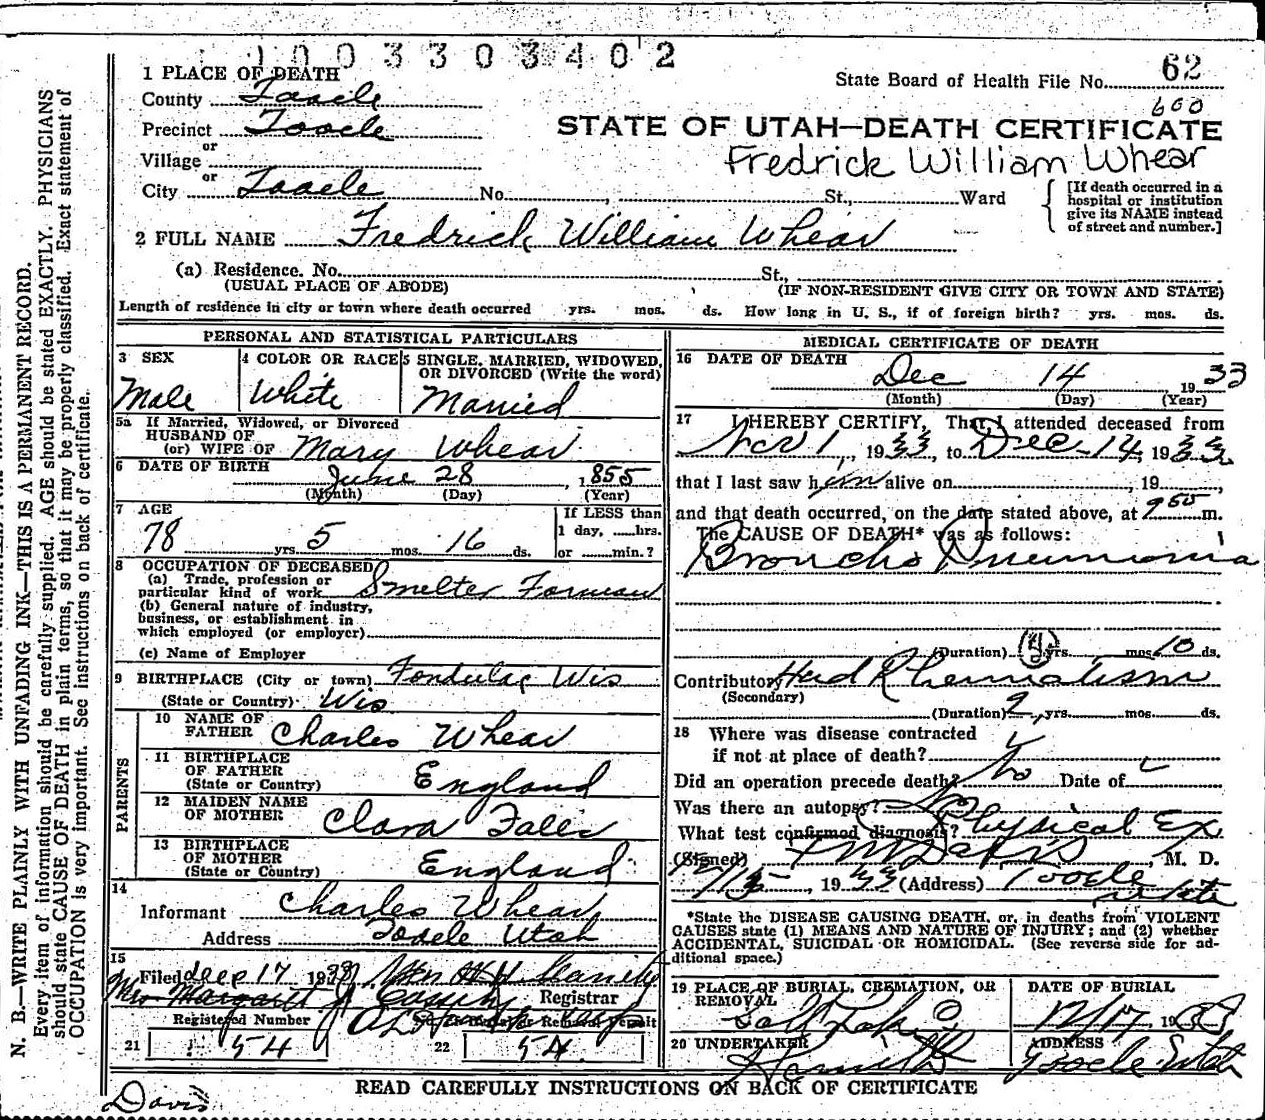 1003303402
1 PLACE OF DEATH
State Board of Health File No. 62
County Tooele
600
Precinct Tooele
STATE OF UTAH—DEATH CERTIFICATE
or
Village
Fredrick William Whear
or
City Tooele No. , St., Ward
[If death occurred in a hospital or institution give its NAME instead of street and number.]
2 FULL NAME Fredrick William Whear
(a) Residence. No. St.,
(USUAL PLACE OF ABODE) (IF NON-RESIDENT GIVE CITY OR TOWN AND STATE)
Length of residence in city or town where death occurred yrs. mos. ds. How long in U. S., if of foreign birth? yrs. mos. ds.
PERSONAL AND STATISTICAL PARTICULARS
3 SEX
Male
4 COLOR OR RACE
White
5 SINGLE, MARRIED, WIDOWED,
OR DIVORCED (Write the word)
Married
5a If Married, Widowed, or Divorced
HUSBAND OF
(or) WIFE OF Mary Whear
6 DATE OF BIRTH
June 28, 1855
(Month) (Day) (Year)
7 AGE
78 yrs. 5 mos. 16 ds.
If LESS than
1 day, hrs.
or min.?
8 OCCUPATION OF DECEASED
(a) Trade, profession or
particular kind of work Smelter Forman
(b) General nature of industry,
business, or establishment in
which employed (or employer)
(c) Name of Employer
9 BIRTHPLACE (City or town) Fondulac Wis
(State or Country) Wis
PARENTS
10 NAME OF
FATHER Charles Whear
11 BIRTHPLACE
OF FATHER
(State or Country) England
12 MAIDEN NAME
OF MOTHER Clara
13 BIRTHPLACE
OF MOTHER
(State or Country) England
14
Informant Charles Whear
Address Tooele Utah
15
Filed Dec 17 1933
Mrs Margaret J Cassity Registrar
Registered Number
21 54
22 54
MEDICAL CERTIFICATE OF DEATH
16 DATE OF DEATH
Dec 14 1933
(Month) (Day) (Year)
17 I HEREBY CERTIFY, That I attended deceased from
Nov 1, 1933, to Dec-14, 1933
that I last saw him alive on , 19
and that death occurred, on the date stated above, at 950 m.
The CAUSE OF DEATH* was as follows:
Broncho Pneumonia
(Duration) yrs. mos. 10 ds.
Contributory Rheumatism
(Secondary)
(Duration) 2 yrs. mos. ds.
18 Where was disease contracted
if not at place of death?
Did an operation precede death? No Date of
Was there an autopsy? No
What test confirmed diagnosis? Physical Ex
(Signed) T M Davis, M. D.
12/15, 1933 (Address) Tooele
Utah
*State the DISEASE CAUSING DEATH, or, in deaths from VIOLENT
CAUSES state (1) MEANS AND NATURE OF INJURY; and (2) whether
ACCIDENTAL, SUICIDAL OR HOMICIDAL. (See reverse side for ad-
ditional space.)
19 PLACE OF BURIAL, CREMATION, OR
REMOVAL
Salt Lake
DATE OF BURIAL
12/17, 1933
20 UNDERTAKER
ADDRESS
Tooele Utah
READ CAREFULLY INSTRUCTIONS ON BACK OF CERTIFICATE
Davis
N. B.—WRITE PLAINLY WITH UNFADING INK—THIS IS A PERMANENT RECORD.
Every item of information should be carefully supplied. AGE should be stated EXACTLY. PHYSICIANS
should state CAUSE OF DEATH in plain terms, so that it may be properly classified. Exact statement of
OCCUPATION is very important. See instructions on back of certificate.